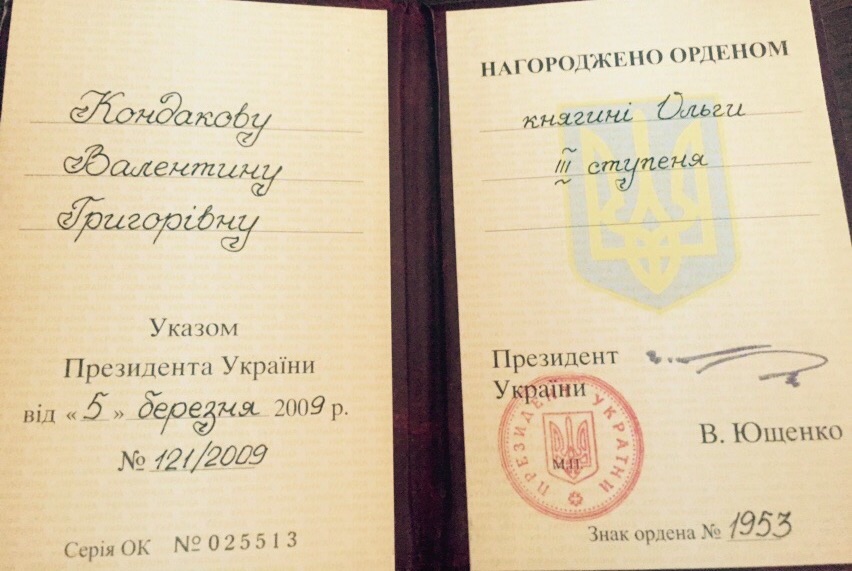 Кондакову
Валентину
Григорівну
Указом
Президента України
від «5» березня 2009 р.
№ 121/2009
Серія ОК № 025513
НАГОРОДЖЕНО ОРДЕНОМ
княгині Ольги
III ступеня
Президент
України
В. Ющенко
ПРЕЗИДЕНТ УКРАЇНИ
М.П.
Знак ордена № 1953